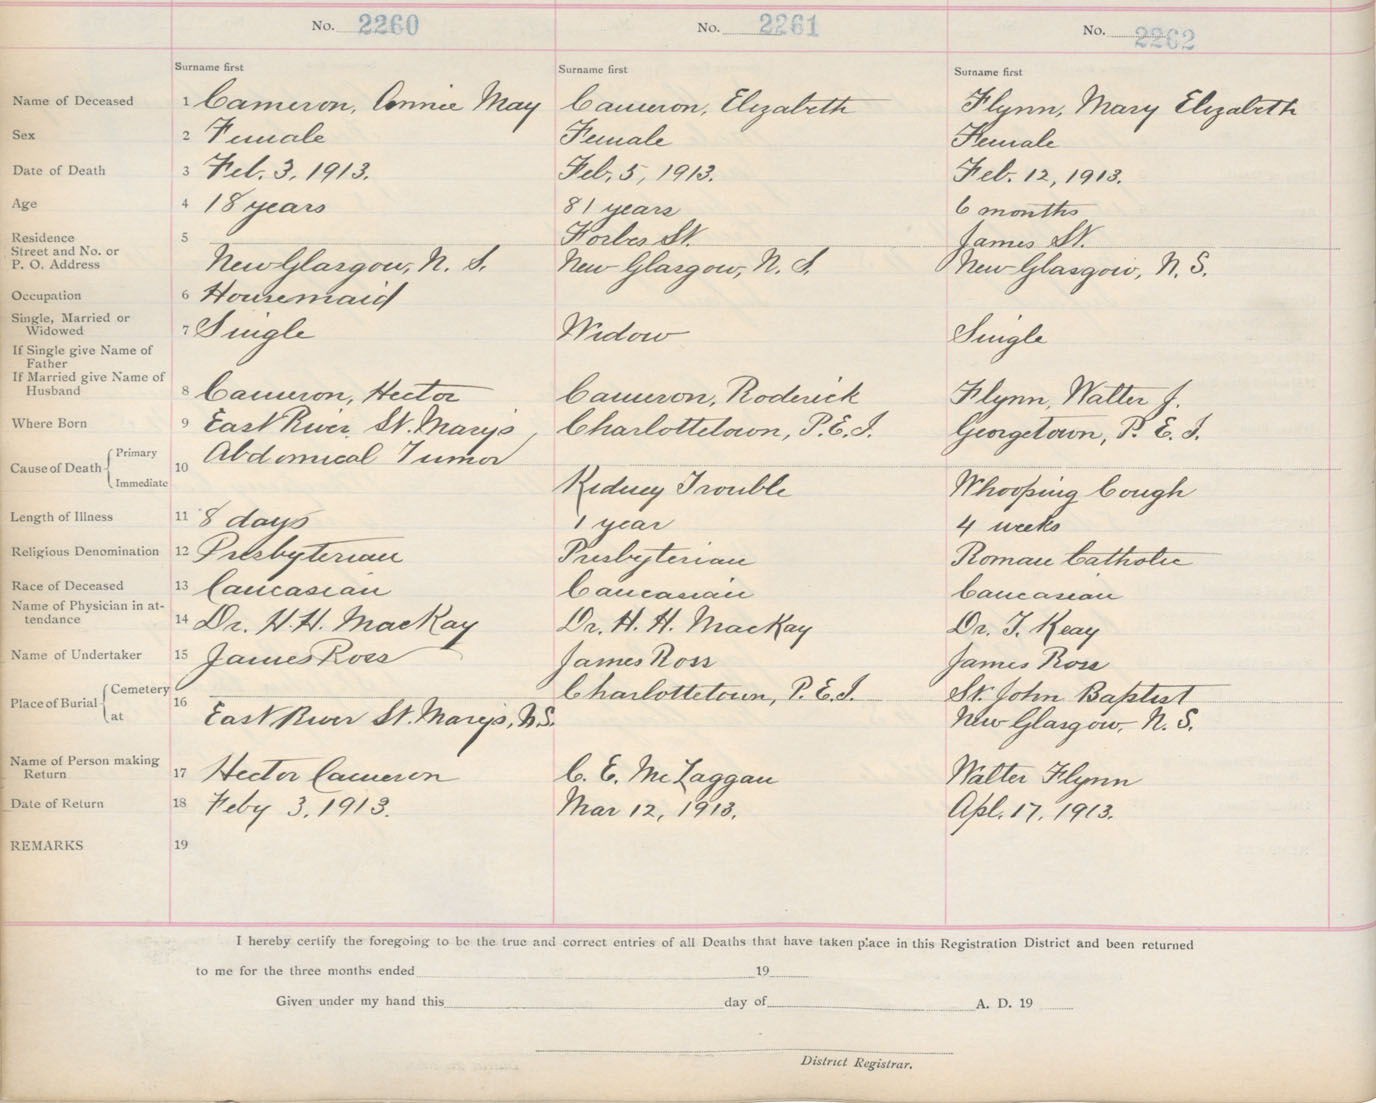 No. 2260 No. 2261 No. 2262
Surname first Surname first Surname first
Name of Deceased 1 Cameron, Annie May Cameron, Elizabeth Flynn, Mary Elizabeth
Sex 2 Female Female Female
Date of Death 3 Feb. 3, 1913. Feb. 5, 1913. Feb. 12, 1913.
Age 4 18 years 81 years 6 months
Residence 5 Forbes St. James St.
Street and No. or
P. O. Address New Glasgow, N. S. New Glasgow, N. S. New Glasgow, N. S.
Occupation 6 Housemaid
Single, Married or
Widowed 7 Single Widow Single
If Single give Name of
Father
If Married give Name of
Husband 8 Cameron, Hector Cameron, Roderick Flynn, Walter J.
Where Born 9 East River St. Mary's Charlottetown, P.E.I. Georgetown, P. E. I.
Cause of Death Primary 10 Abdomical Tumor
Immediate Kidney Trouble Whooping Cough
Length of Illness 11 8 days 1 year 4 weeks
Religious Denomination 12 Presbyterian Presbyterian Roman Catholic
Race of Deceased 13 Caucasian Caucasian Caucasian
Name of Physician in at-
tendance 14 Dr. H. H. MacKay Dr. H. H. MacKay Dr. T. Keay
Name of Undertaker 15 James Ross James Ross James Ross
Place of Burial Cemetery 16 Charlottetown, P.E.I. St. John Baptist
at East River St. Mary's, N.S. New Glasgow, N. S.
Name of Person making
Return 17 Hector Cameron C. E. McLaggan Walter Flynn
Date of Return 18 Feby 3, 1913. Mar 12, 1913. Apl. 17, 1913.
REMARKS 19
I hereby certify the foregoing to be the true and correct entries of all Deaths that have taken place in this Registration District and been returned
to me for the three months ended 19
Given under my hand this day of A. D. 19
District Registrar.